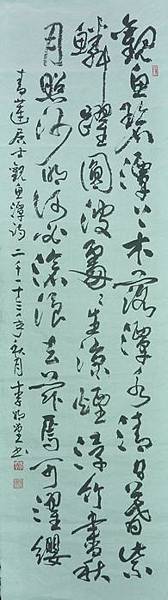 觀魚碧潭上木落潭水清日暮紫
鱗躍圓波處々生涼煙浮竹盡秋
月照沙明何必滄浪去茲焉可濯纓
青蓮居士觀魚潭詩二千十三年秋月李